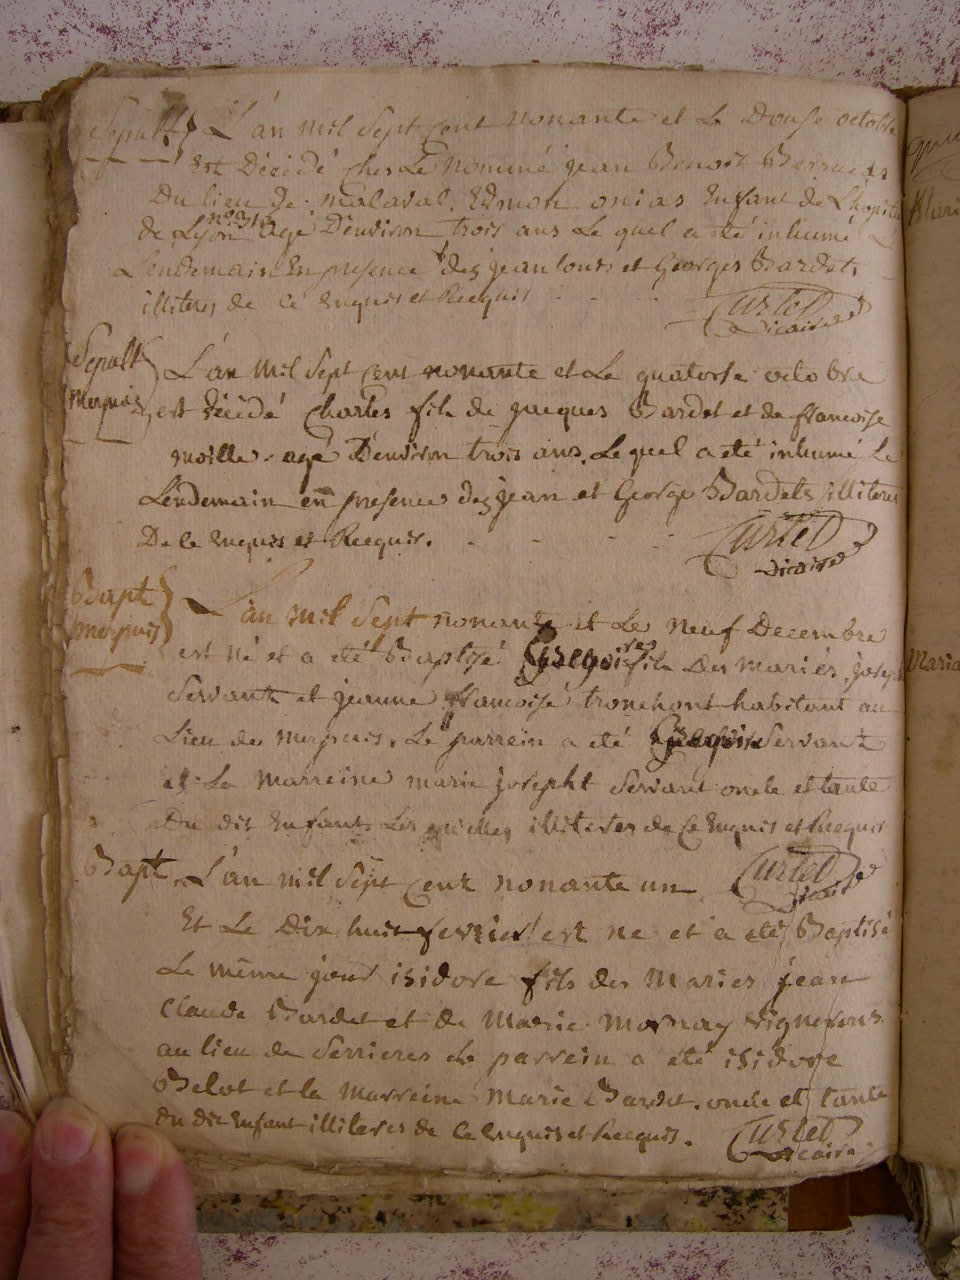 Sepult L'an mil Sept Cent nonante et Le Douse octobre
Est Décédé ches Le nommé jean Benoit
Du lieu De malaval, Edmon onias Enfant de L'hopital
de Lyon n° 313 agé D'environ trois ans Le quel a été inhumé Le
Lendemain En presence des jean louis et Georges Bardet,
illiteres de ce Enquis et Recquis
Curtet
Vicaire
Sepult
Merpuis
L'an Mil Sept Cent nonante et Le quatorse octobre
est décédé Charles fils de jacques Bardet et de francoise
moille agé D'environ trois ans, Le quel a été inhumé Le
Lendemain en presence des jean et George Bardets illiteres
De ce Enquis et Recquis.
Curtet
Vicaire
Bapt
merpuis
L'an mil Sept nonante et Le neuf Decembre
est né et a été Baptisé fils Des mariés, joseph
Servant et jeanne francoise tronchont habitant au
Lieu de merpuis, Le parrein a été Servant
et La marreine marie josepht Servant oncle et tante
Du dit Enfant Les quelles illiteres de Ce Enquis et Recquis
Curtet
Vicaire
Bapt. L'an mil Sept Cent nonante un
Et Le Dix huit fevrier est né et a été Baptisé
Le même jour isidore fils des Mariés jean
Claude Bardet et de Marie Mornay vignerons
au lieu de Serrieres Le parrein a été isidore
Belot et la Marreine Marie Bardet, oncle et tante
Du dit Enfant illiteres de Ce Enquis et Recquis.
Curtet
Vicaire